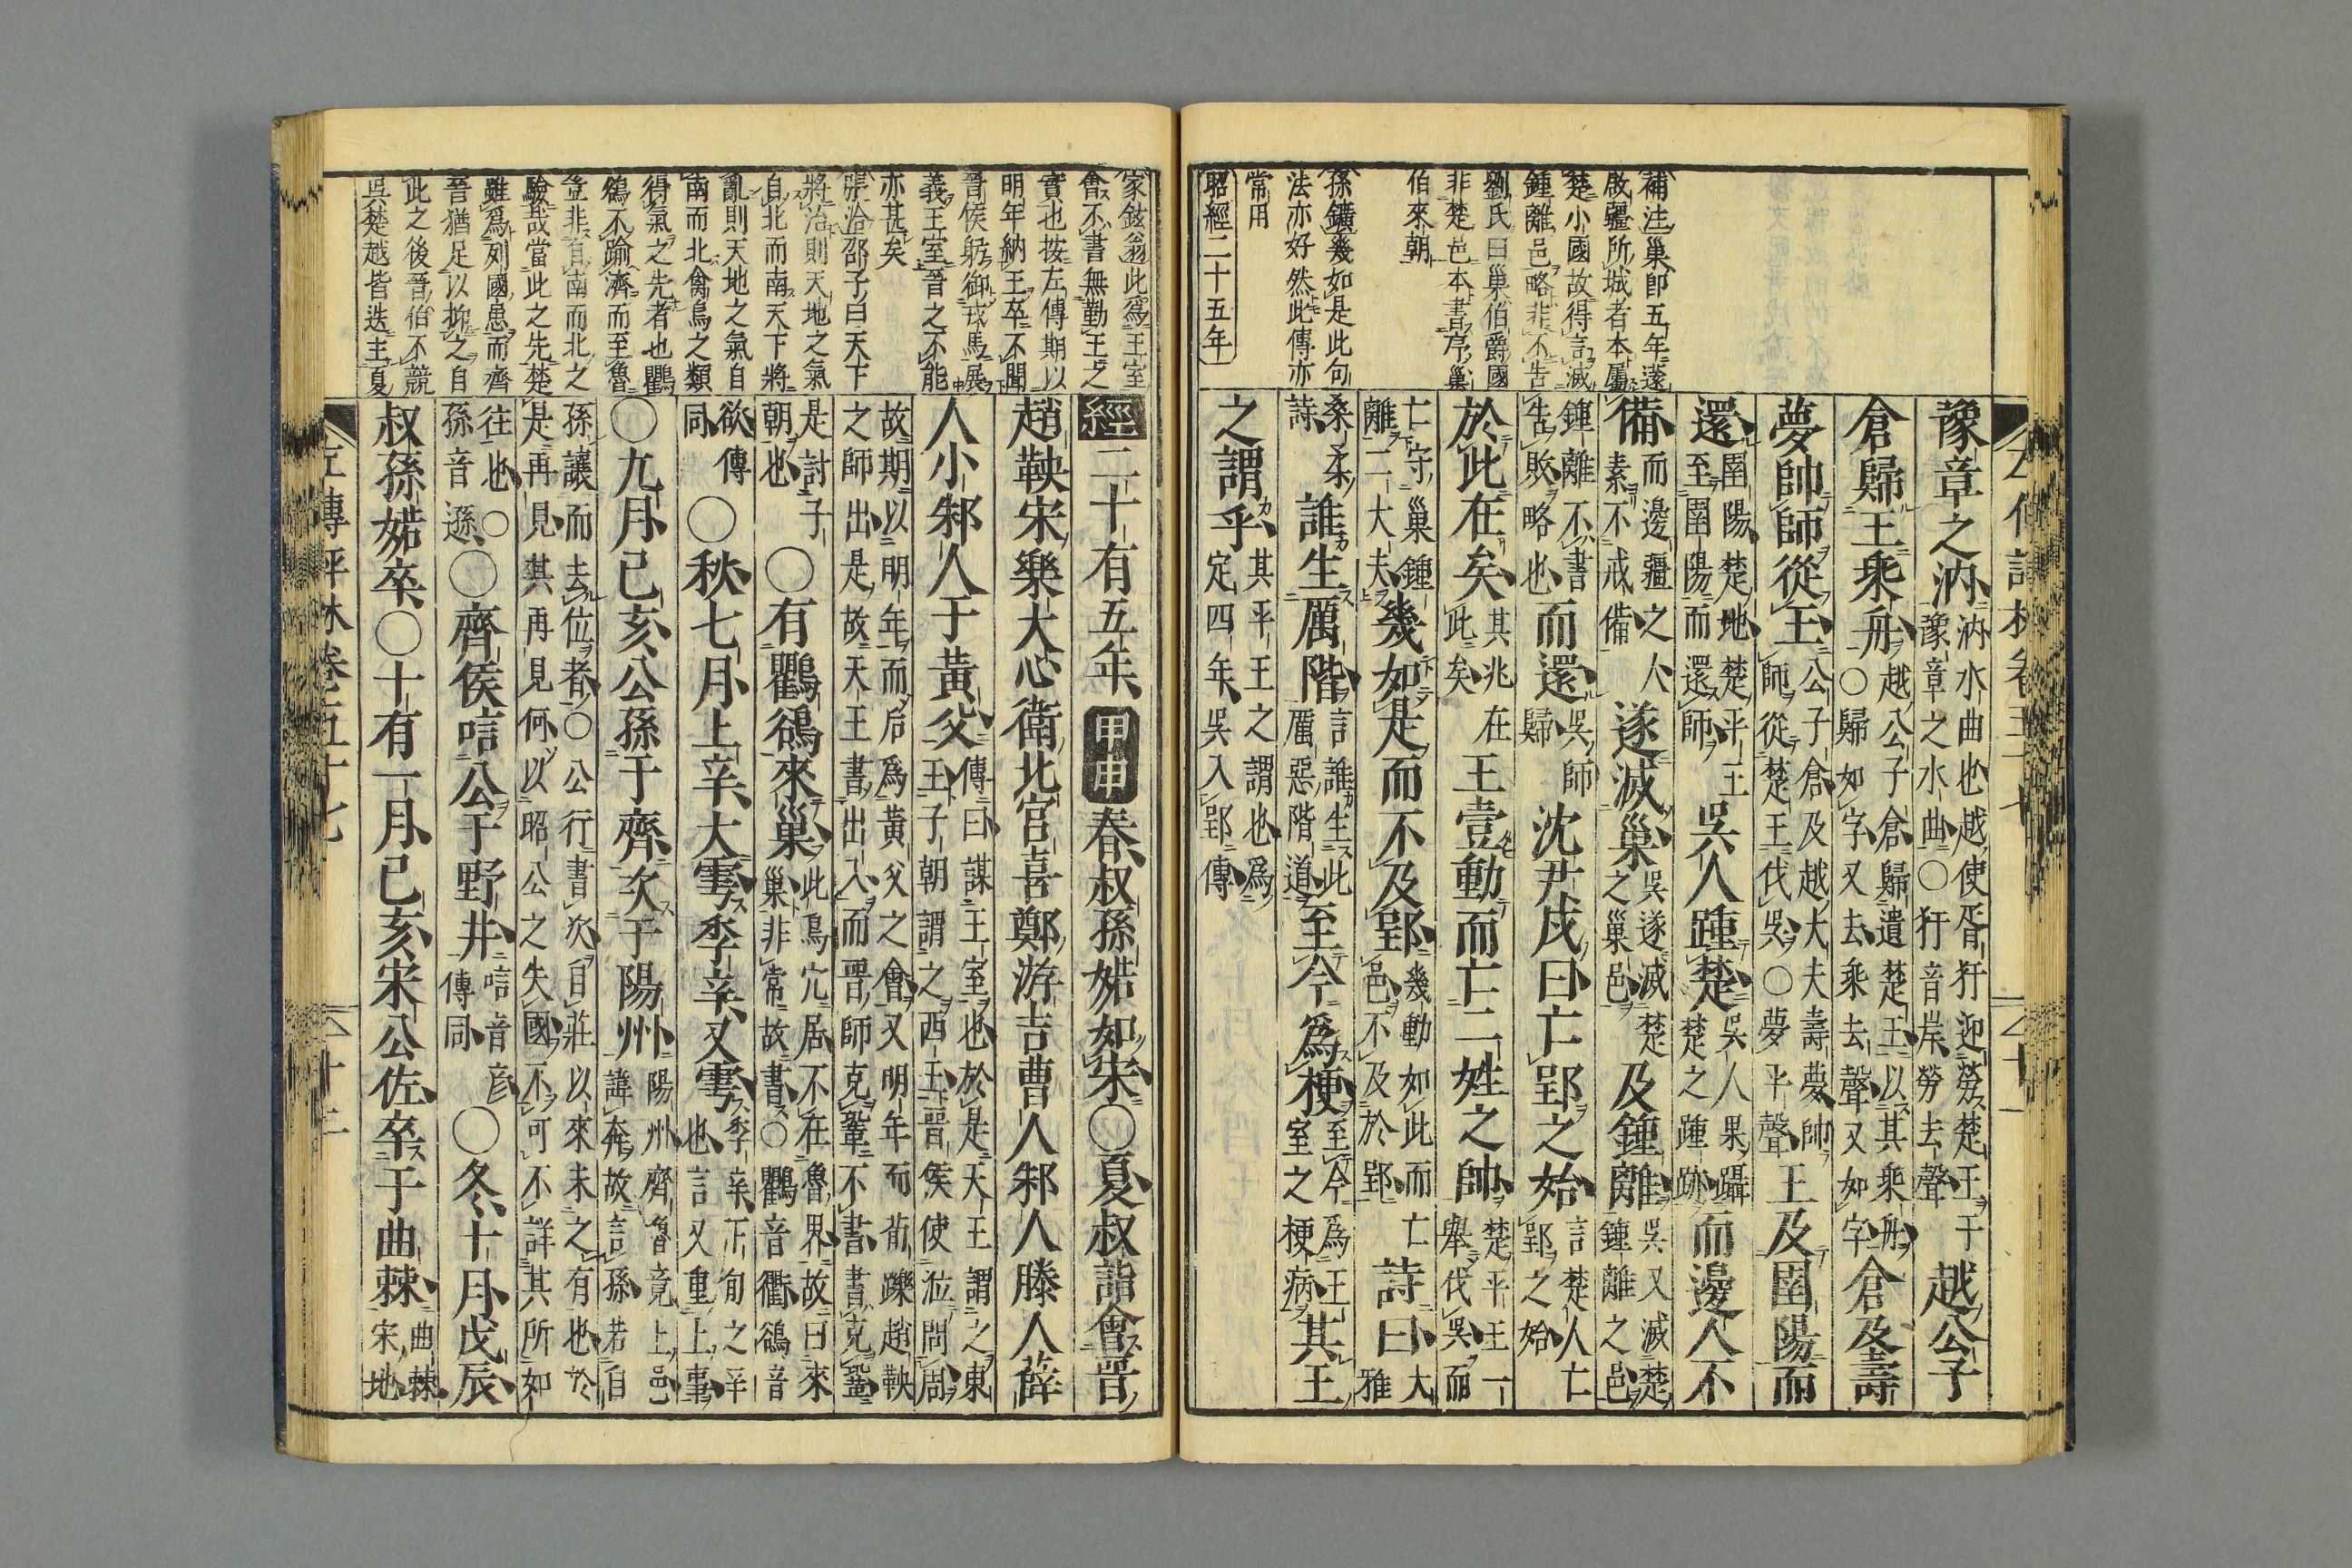 補注巢即五年薳
啟疆所城者本屬
楚小國故得言滅
鍾離邑略非不告
劉氏曰巢伯爵國
非楚邑本書序巢
伯來朝
孫鑛幾如是此句
法亦好然此傳亦
常用
昭經二十五年
豫章之汭汭水曲也越使胥犴迎勞楚王于豫章之水曲○犴音岸勞去聲越公子
倉歸王乘舟越公子倉歸遺楚王以其乘舟○歸如字又去乘去聲又如字倉及壽
夢帥師從王公子倉及越大夫壽夢帥師從楚王伐吳○夢平聲王及圉陽而
還圉陽楚地楚平王至圉陽而還師吳人踵楚吳人果躡楚之踵跡而邊人不
備而邊疆之人素不戒備遂滅巢吳遂滅楚之巢邑及鍾離吳又滅楚鍾離之邑
鍾離不書告敗略也而還吳師歸沈尹戌曰亡郢之始言楚人亡郢之始
於此在矣其兆在此矣王壹動而亡二姓之帥楚平王一舉伐吳而
亡守巢鍾離二大夫幾如是而不及郢幾動如此而亡邑不及於郢詩曰大雅
桑柔詩誰生厲階言誰生此厲惡階道至今爲梗至今爲王室之梗病其王
之謂乎其平王之謂也爲定四年吳入郢傳
家鉉翁此爲王室
會不書無勤王之
實也按左傳期以
明年納王卒不聞
晉侯躬御戎馬展
義王室晉之不能
亦甚矣
張洽邵子曰天下
將治則天地之氣
自北而南天下將
亂則天地之氣自
南而北禽鳥之類
得氣之先者也鸜
鵒不踰濟而至魯
豈非自南而北之
驗哉當此之先楚
雖爲列國患而齊
晉猶足以抑之自
此之後晉伯不競
吳楚越皆迭主夏
經二十有五年甲申春叔孫婼如宋○夏叔詣會晉
趙鞅宋樂大心衛北宮喜鄭游吉曹人邾人滕人薛
人小邾人于黃父傳曰謀王室也於是天王謂之東王子朝謂之西王晉侯使涖問周
故期以明年而后爲黃父之會又明年而荀躒趙鞅之師出是故天王書出入而晉師克鞏不書書克鞏
是討子朝也○有鸜鵒來巢此鳥宂居不在魯界故曰來巢非常故書○鸜音衢鵒音
欲傳同○秋七月上辛大雩季辛又雩季辛下旬之辛也言又重上事
○九月己亥公孫于齊次于陽州陽州齊魯竟上邑諱奔故言孫若自
孫讓而去位者○公行書次自莊以來未之有也於是再見其再見何以昭公之失國不可不詳其所如
往也○孫音遜○齊侯唁公于野井唁音彥傳同○冬十月戊辰
叔孫婼卒○十有一月己亥宋公佐卒于曲棘曲棘宋地